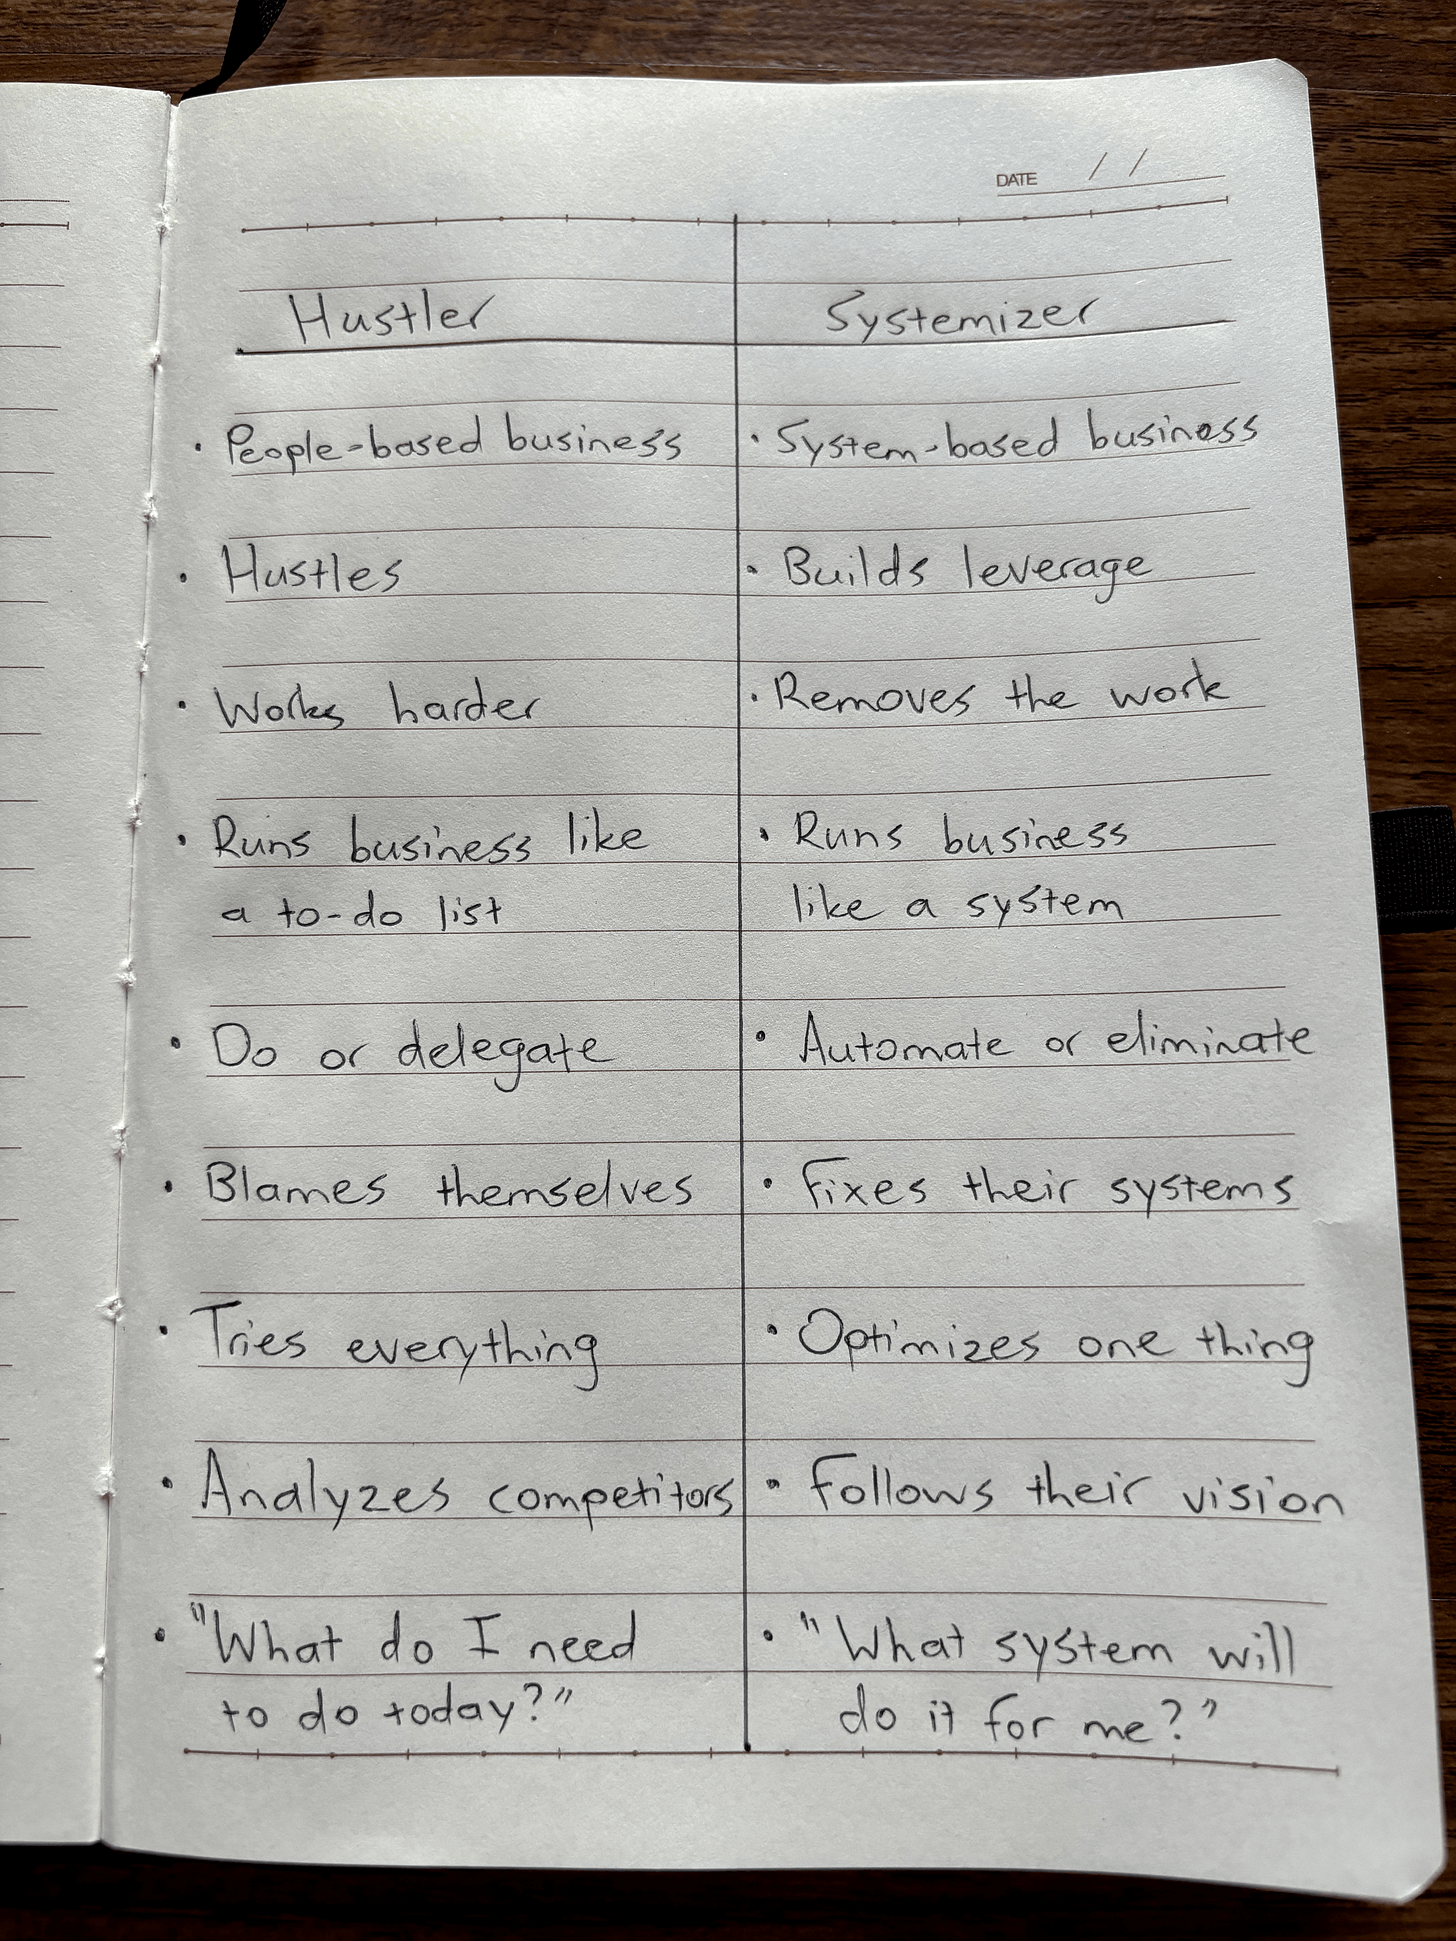 DATE / /
Hustler Systemizer
· People-based business · System-based business
· Hustles · Builds leverage
· Works harder · Removes the work
· Runs business like · Runs business
a to-do list like a system
· Do or delegate · Automate or eliminate
· Blames themselves · Fixes their systems
· Tries everything · Optimizes one thing
· Analyzes competitors · Follows their vision
· "What do I need · "What system will
to do today?" do it for me?"